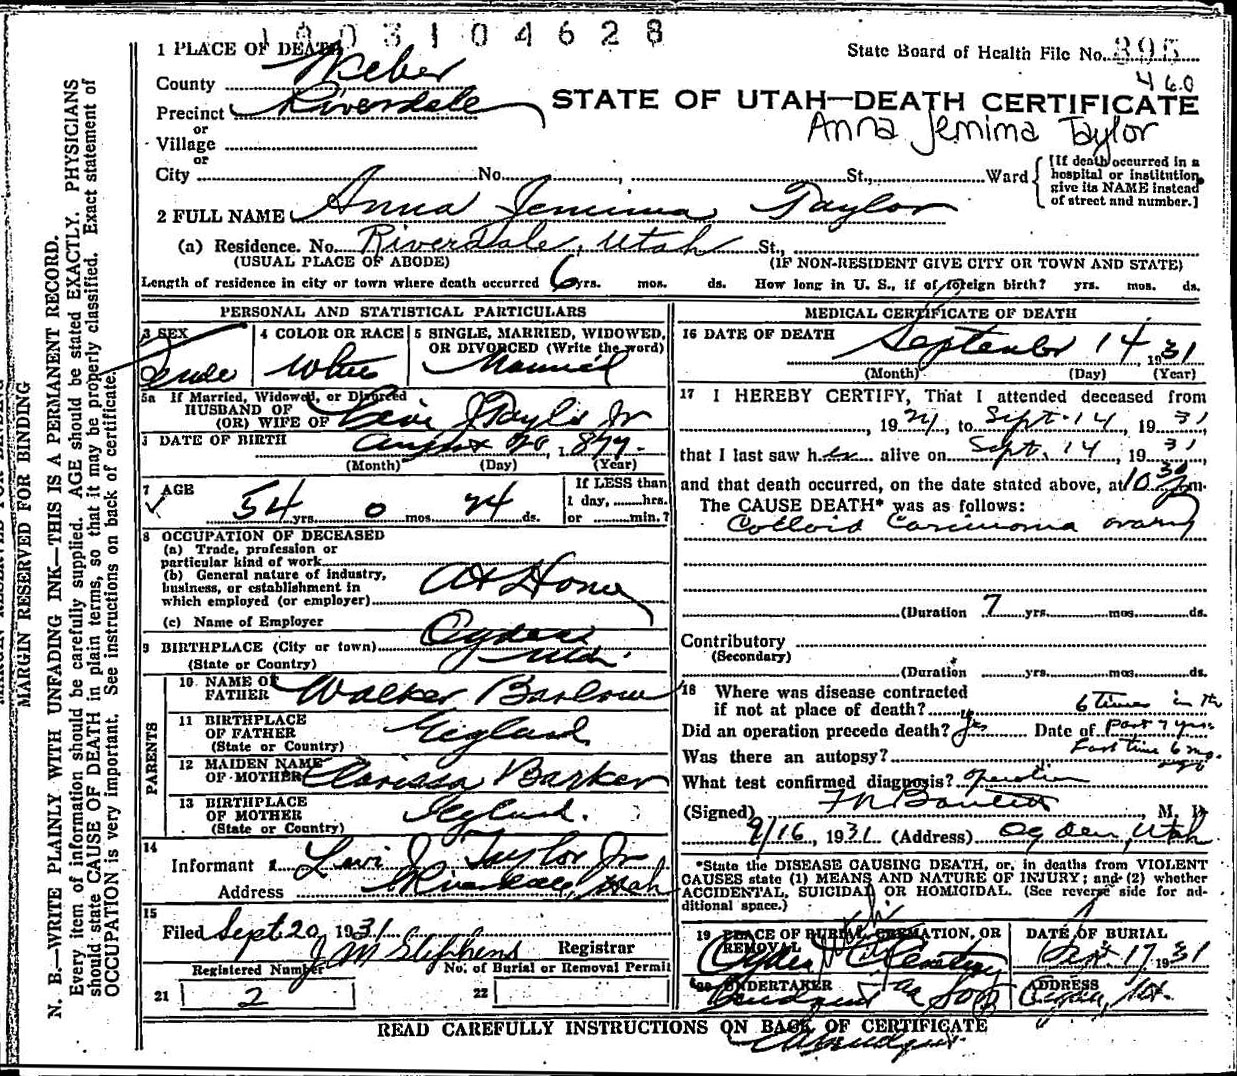 1903104628
1 PLACE OF DEATH
State Board of Health File No. 395
County Weber
460
Precinct Riverdale
STATE OF UTAH—DEATH CERTIFICATE
or
Anna Jemima Taylor
Village
or
City No. , St., Ward
[If death occurred in a hospital or institution, give its NAME instead of street and number.]
2 FULL NAME Anna Jemima Taylor
(a) Residence. No. Riverdale, Utah St.,
(USUAL PLACE OF ABODE) (IF NON-RESIDENT GIVE CITY OR TOWN AND STATE)
Length of residence in city or town where death occurred 6 yrs. mos. ds. How long in U. S., if of foreign birth? yrs. mos. ds.
PERSONAL AND STATISTICAL PARTICULARS
3 SEX 4 COLOR OR RACE 5 SINGLE, MARRIED, WIDOWED,
OR DIVORCED (Write the word)
Female White Married
5a If Married, Widowed, or Divorced
HUSBAND OF
(OR) WIFE OF Levi J Taylor Jr
DATE OF BIRTH August 20, 1877
(Month) (Day) (Year)
7 AGE If LESS than
54 yrs. 0 mos. 24 ds. 1 day, hrs.
or min.?
8 OCCUPATION OF DECEASED
(a) Trade, profession or
particular kind of work
(b) General nature of industry,
business, or establishment in
which employed (or employer) At Home
(c) Name of Employer
9 BIRTHPLACE (City or town) Ogden
(State or Country) Utah
PARENTS
10 NAME OF
FATHER Walker Barlow
11 BIRTHPLACE
OF FATHER England
(State or Country)
12 MAIDEN NAME
OF MOTHER Clarissa Barker
13 BIRTHPLACE
OF MOTHER England
(State or Country)
14
Informant Levi J Taylor Jr
Address Riverdale, Utah
15
Filed Sept 20, 1931
J M Stephens Registrar
Registered Number No. of Burial or Removal Permit
21 2 22
MEDICAL CERTIFICATE OF DEATH
16 DATE OF DEATH
September 14 1931
(Month) (Day) (Year)
17 I HEREBY CERTIFY, That I attended deceased from
, 1924, to Sept. 14, 1931,
that I last saw her alive on Sept. 14, 1931,
and that death occurred, on the date stated above, at 10 30 m.
The CAUSE DEATH* was as follows:
Colloid Carcinoma ovary
(Duration 7 yrs. mos. ds.
Contributory
(Secondary)
(Duration yrs. mos. ds.
18 Where was disease contracted
if not at place of death? 6 times in the
Did an operation precede death? Yes Date of past 7 yrs.
Was there an autopsy? Last time 6 mo. ago
What test confirmed diagnosis? Operation
(Signed) M. D.
9/16, 1931 (Address) Ogden, Utah
*State the DISEASE CAUSING DEATH, or, in deaths from VIOLENT
CAUSES state (1) MEANS AND NATURE OF INJURY; and (2) whether
ACCIDENTAL, SUICIDAL OR HOMICIDAL. (See reverse side for ad-
ditional space.)
19 PLACE OF BURIAL, CREMATION, OR DATE OF BURIAL
REMOVAL
Ogden City Cemetery Sept 17 1931
20 UNDERTAKER ADDRESS
Ogden, Ut.
READ CAREFULLY INSTRUCTIONS ON BACK OF CERTIFICATE
MARGIN RESERVED FOR BINDING
N. B.—WRITE PLAINLY WITH UNFADING INK—THIS IS A PERMANENT RECORD.
Every item of information should be carefully supplied. AGE should be stated EXACTLY. PHYSICIANS
should state CAUSE OF DEATH in plain terms, so that it may be properly classified. Exact statement of
OCCUPATION is very important. See instructions on back of certificate.